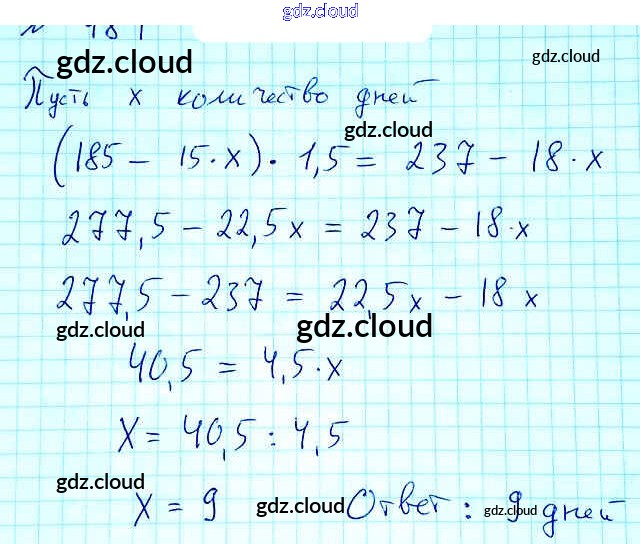 gdz.cloud
gdz.cloud gdz.cloud
Пусть x количество дней
gdz.cloud
(185 - 15·x)·1,5 = 237 - 18·x
277,5 - 22,5x = 237 - 18·x
277,5 - 237 = 22,5x - 18x
gdz.cloud gdz.cloud
40,5 = 4,5·x
x = 40,5 : 4,5
gdz.cloud gdz.cloud gdz.cloud
x = 9 Ответ: 9 дней